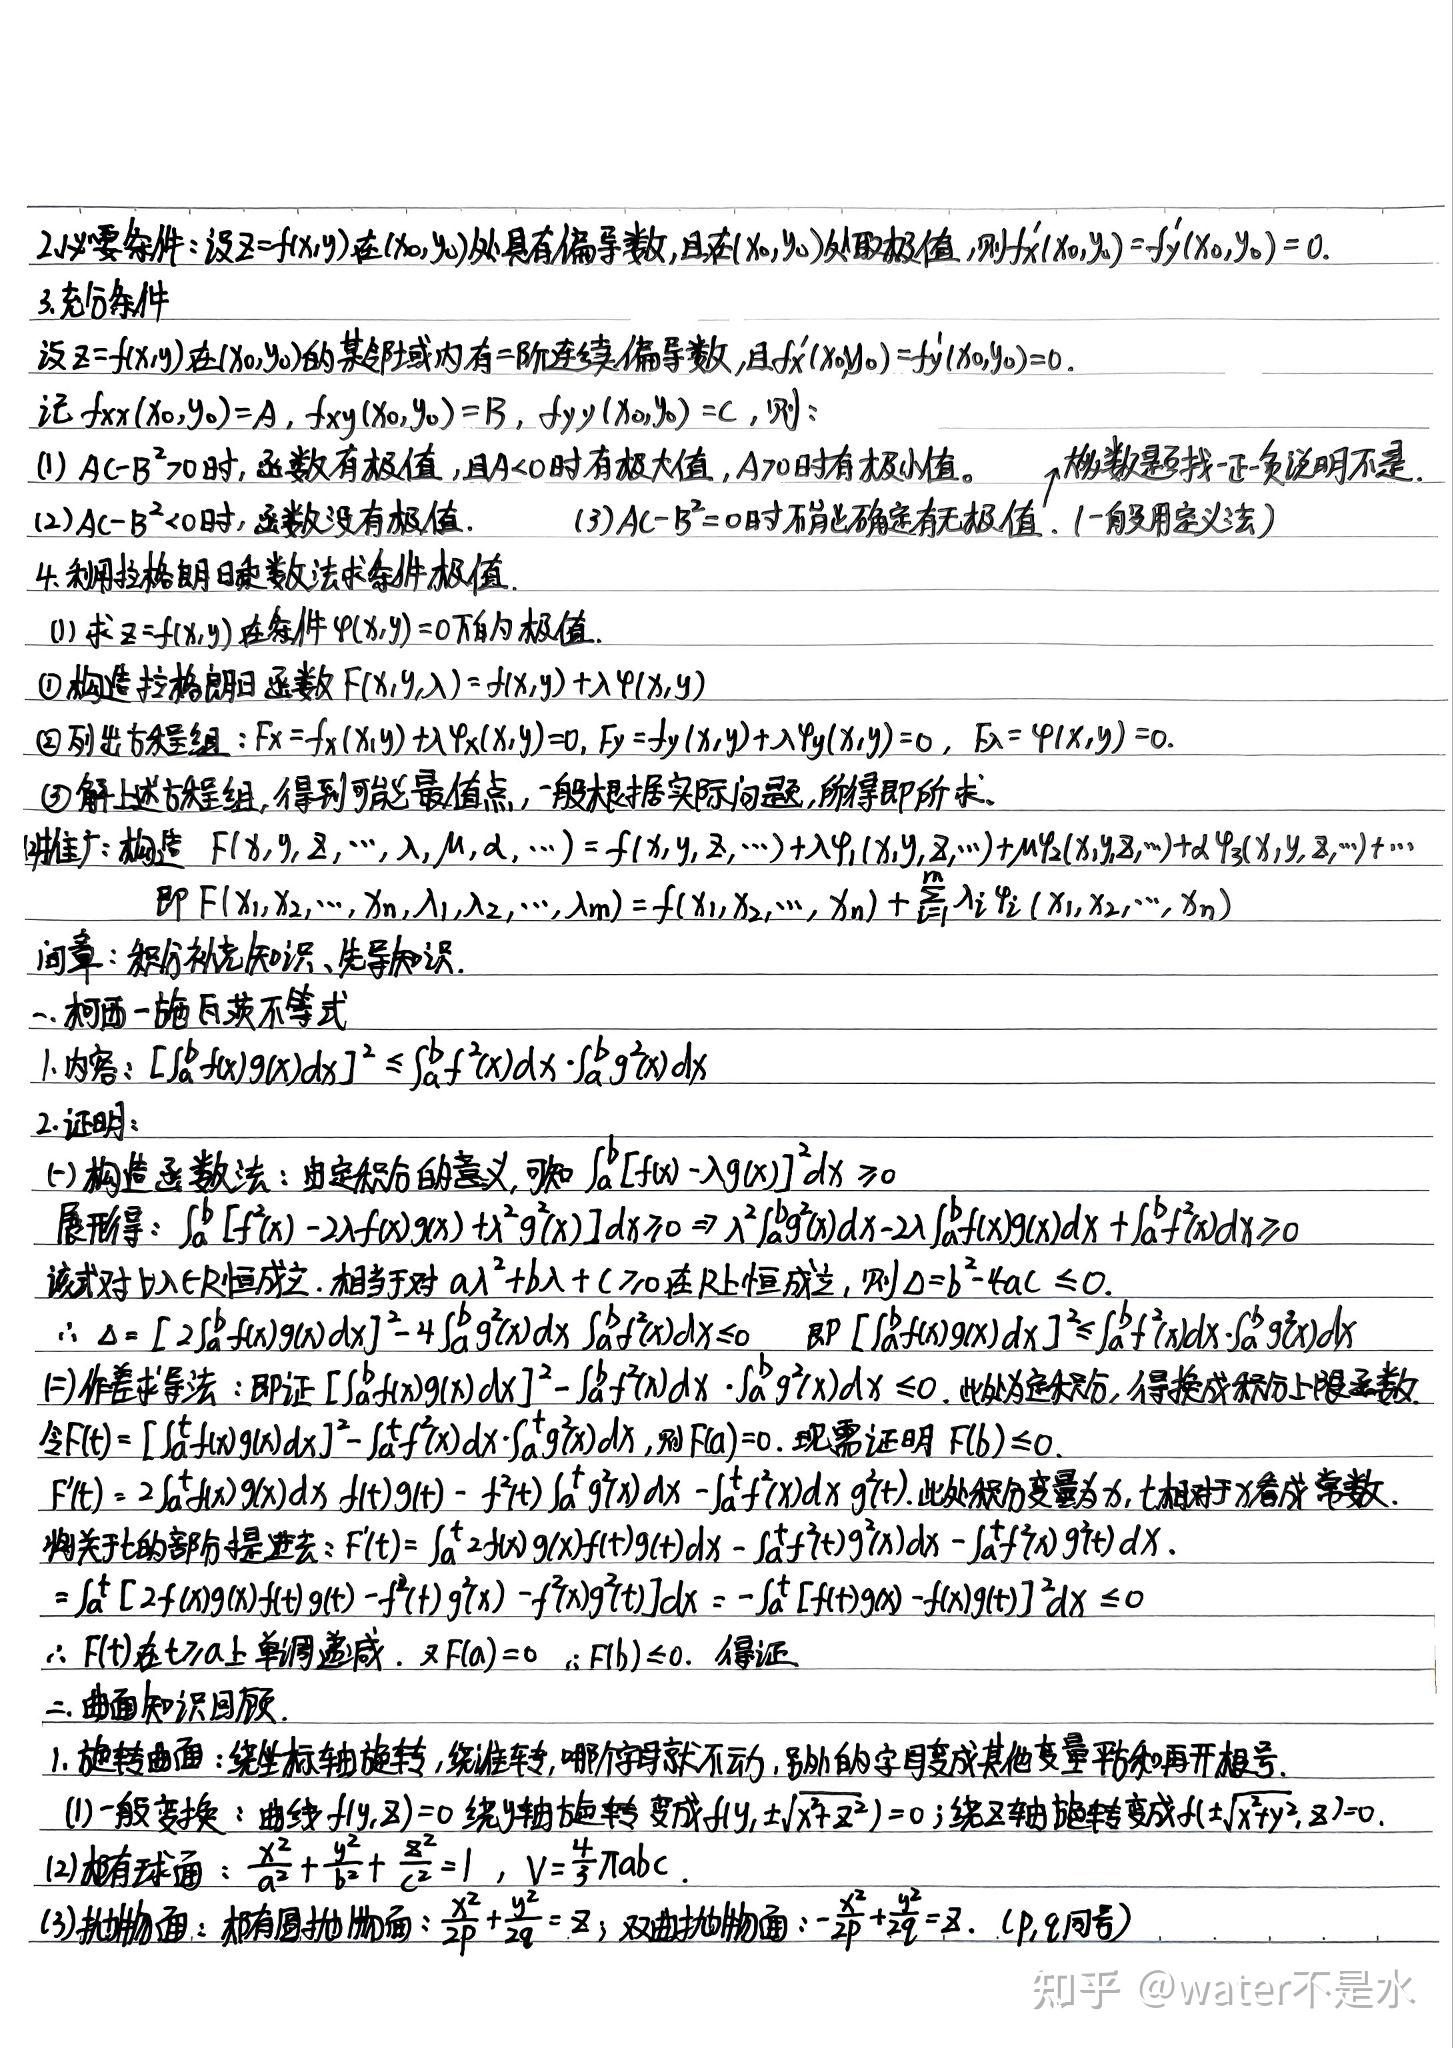 2.必要条件:设z=f(x,y)在(x₀,y₀)处具有偏导数,且在(x₀,y₀)处取极值,则fx'(x₀,y₀)=fy'(x₀,y₀)=0.
3.充分条件
设z=f(x,y)在(x₀,y₀)的某邻域内有二阶连续偏导数,且fx'(x₀,y₀)=fy'(x₀,y₀)=0.
记fxx(x₀,y₀)=A, fxy(x₀,y₀)=B, fyy(x₀,y₀)=C,则:
(1) AC-B²>0时,函数有极值,且A<0时有极大值,A>0时有极小值。 ↗大多数是找一正一负说明不是.
(2) AC-B²<0时,函数没有极值. (3) AC-B²=0时不能确定有无极值.(一般用定义法)
4.利用拉格朗日乘数法求条件极值.
(1) 求z=f(x,y)在条件φ(x,y)=0下的极值.
①构造拉格朗日函数F(x,y,λ)=f(x,y)+λφ(x,y)
②列出方程组:Fx=fx(x,y)+λφx(x,y)=0, Fy=fy(x,y)+λφy(x,y)=0, Fλ=φ(x,y)=0.
③解上述方程组,得到可能最值点,一般根据实际问题,所得即所求。
(2)推广:构造 F(x,y,z,…,λ,μ,α,…)=f(x,y,z,…)+λφ₁(x,y,z,…)+μφ₂(x,y,z,…)+αφ₃(x,y,z,…)+…
即 F(x₁,x₂,…,xₙ,λ₁,λ₂,…,λm)=f(x₁,x₂,…,xₙ)+∑ᵢ₌₁ᵐ λᵢφᵢ(x₁,x₂,…,xₙ)
间章:积分补充知识、先导知识.
一.柯西-施瓦茨不等式
1.内容:[∫ₐᵇf(x)g(x)dx]²≤∫ₐᵇf²(x)dx·∫ₐᵇg²(x)dx
2.证明:
(一)构造函数法:由定积分的意义,可知 ∫ₐᵇ[f(x)-λg(x)]²dx≥0
展开得:∫ₐᵇ[f²(x)-2λf(x)g(x)+λ²g²(x)]dx≥0⇒λ²∫ₐᵇg²(x)dx-2λ∫ₐᵇf(x)g(x)dx+∫ₐᵇf²(x)dx≥0
该式对∀λ∈R恒成立.相当于对 aλ²+bλ+c≥0在R上恒成立,则Δ=b²-4ac≤0.
∴ Δ=[2∫ₐᵇf(x)g(x)dx]²-4∫ₐᵇg²(x)dx∫ₐᵇf²(x)dx≤0 即[∫ₐᵇf(x)g(x)dx]²≤∫ₐᵇf²(x)dx·∫ₐᵇg²(x)dx
(二)作差求导法:即证[∫ₐᵇf(x)g(x)dx]²-∫ₐᵇf²(x)dx·∫ₐᵇg²(x)dx≤0.此处为定积分,得换成积分上限函数.
令F(t)=[∫ₐᵗf(x)g(x)dx]²-∫ₐᵗf²(x)dx·∫ₐᵗg²(x)dx,则F(a)=0.现需证明F(b)≤0.
F'(t)=2∫ₐᵗf(x)g(x)dx f(t)g(t)-f²(t)∫ₐᵗg²(x)dx-∫ₐᵗf²(x)dx g²(t).此处积分变量为x,t相对于x看成常数.
将关于t的部分提进去:F'(t)=∫ₐᵗ2f(x)g(x)f(t)g(t)dx-∫ₐᵗf²(t)g²(x)dx-∫ₐᵗf²(x)g²(t)dx.
=∫ₐᵗ[2f(x)g(x)f(t)g(t)-f²(t)g²(x)-f²(x)g²(t)]dx=-∫ₐᵗ[f(t)g(x)-f(x)g(t)]²dx≤0
∴ F(t)在t≥a上单调递减.又F(a)=0 ∴F(b)≤0. 得证.
二.曲面知识回顾.
1.旋转曲面:绕坐标轴旋转,绕谁转,哪个字母就不动,另外的字母变成其他变量平方和再开根号.
(1)一般变换:曲线f(y,z)=0绕y轴旋转变成f(y,±√(x²+z²))=0;绕z轴旋转变成f(±√(x²+y²),z)=0.
(2)椭球面:x²/a²+y²/b²+z²/c²=1, V=4/3πabc.
(3)抛物面:椭圆抛物面:x²/2p+y²/2q=z;双曲抛物面:-x²/2p+y²/2q=z.(p,q同号)
知乎 @water不是水